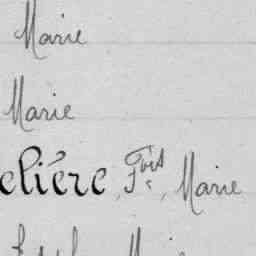 Marie
Marie
elière, Fois, Marie